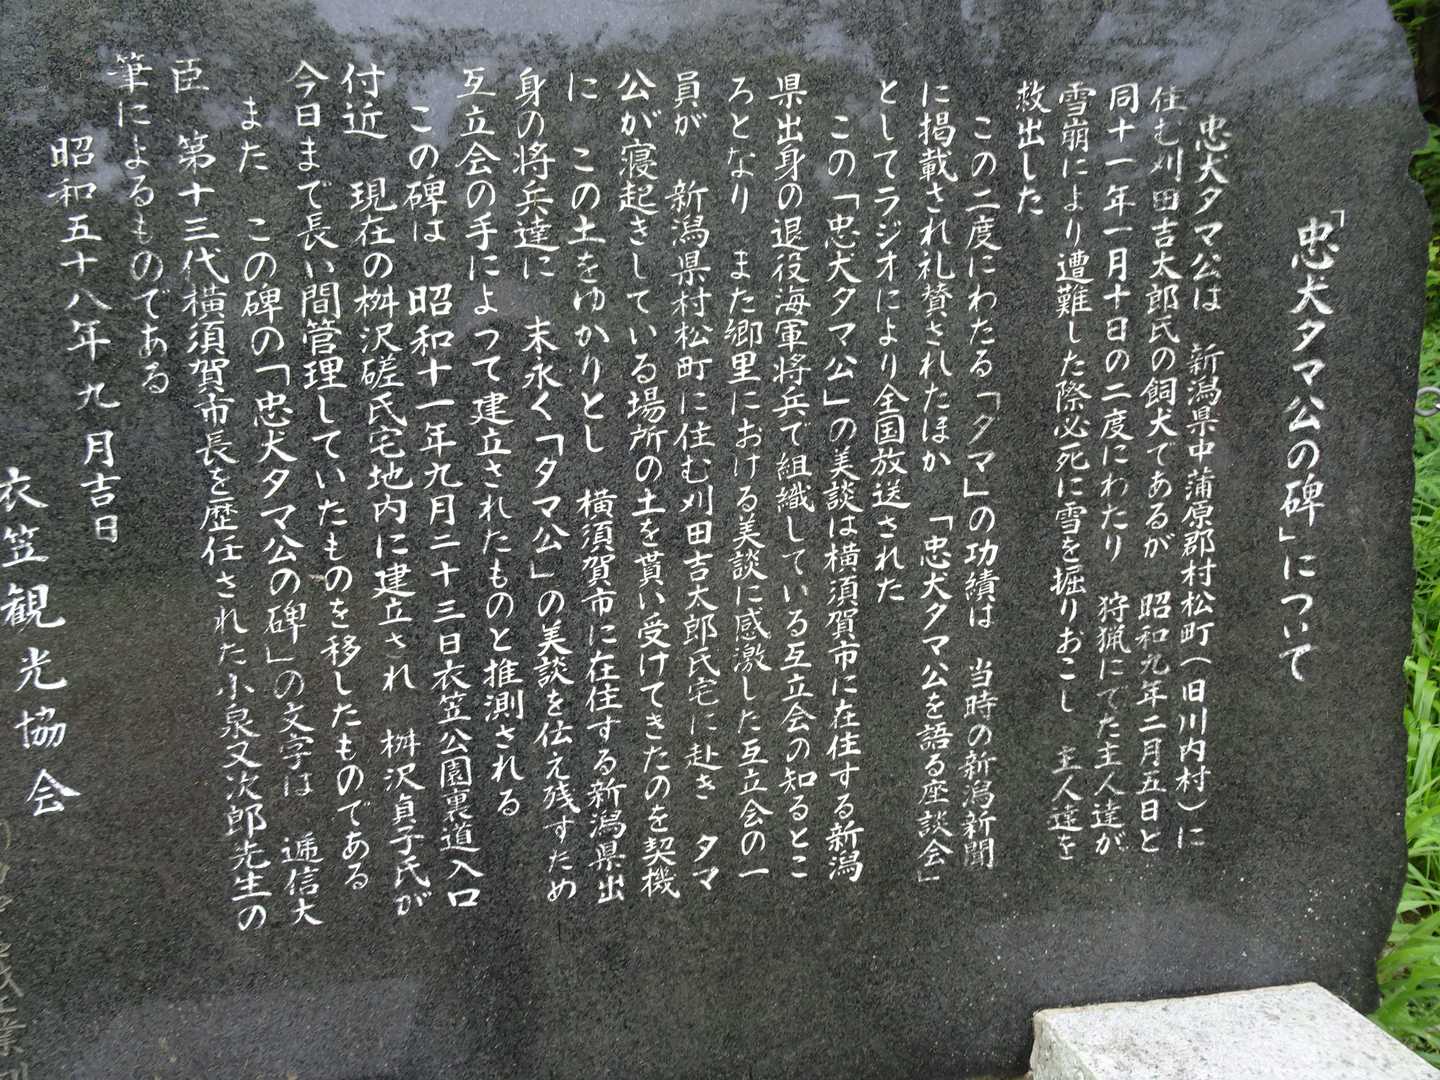 「忠犬タマ公の碑」について
忠犬タマ公は 新潟県中蒲原郡村松町(旧川内村)に
住む刈田吉太郎氏の飼犬であるが 昭和九年二月五日と
同十一年一月十日の二度にわたり 狩猟にでた主人達が
雪崩により遭難した際必死に雪を掘りおこし 主人達を
救出した
この二度にわたる「タマ」の功績は 当時の新潟新聞
に掲載され礼賛されたほか 「忠犬タマ公を語る座談会」
としてラジオにより全国放送された
この「忠犬タマ公」の美談は横須賀市に在住する新潟
県出身の退役海軍将兵で組織している互立会の知るとこ
ろとなり また郷里における美談に感激した互立会の一
員が 新潟県村松町に住む刈田吉太郎氏宅に赴き タマ
公が寝起きしている場所の土を貰い受けてきたのを契機
に この土をゆかりとし 横須賀市に在住する新潟県出
身の将兵達に 末永く「タマ公」の美談を伝え残すため
互立会の手によつて建立されたものと推測される
この碑は 昭和十一年九月二十三日衣笠公園裏道入口
付近 現在の桝沢磋氏宅地内に建立され 桝沢貞子氏が
今日まで長い間管理していたものを移したものである
また この碑の「忠犬タマ公の碑」の文字は 逓信大
臣 第十三代横須賀市長を歴任された小泉又次郎先生の
筆によるものである
昭和五十八年 九 月吉日
衣笠観光協会